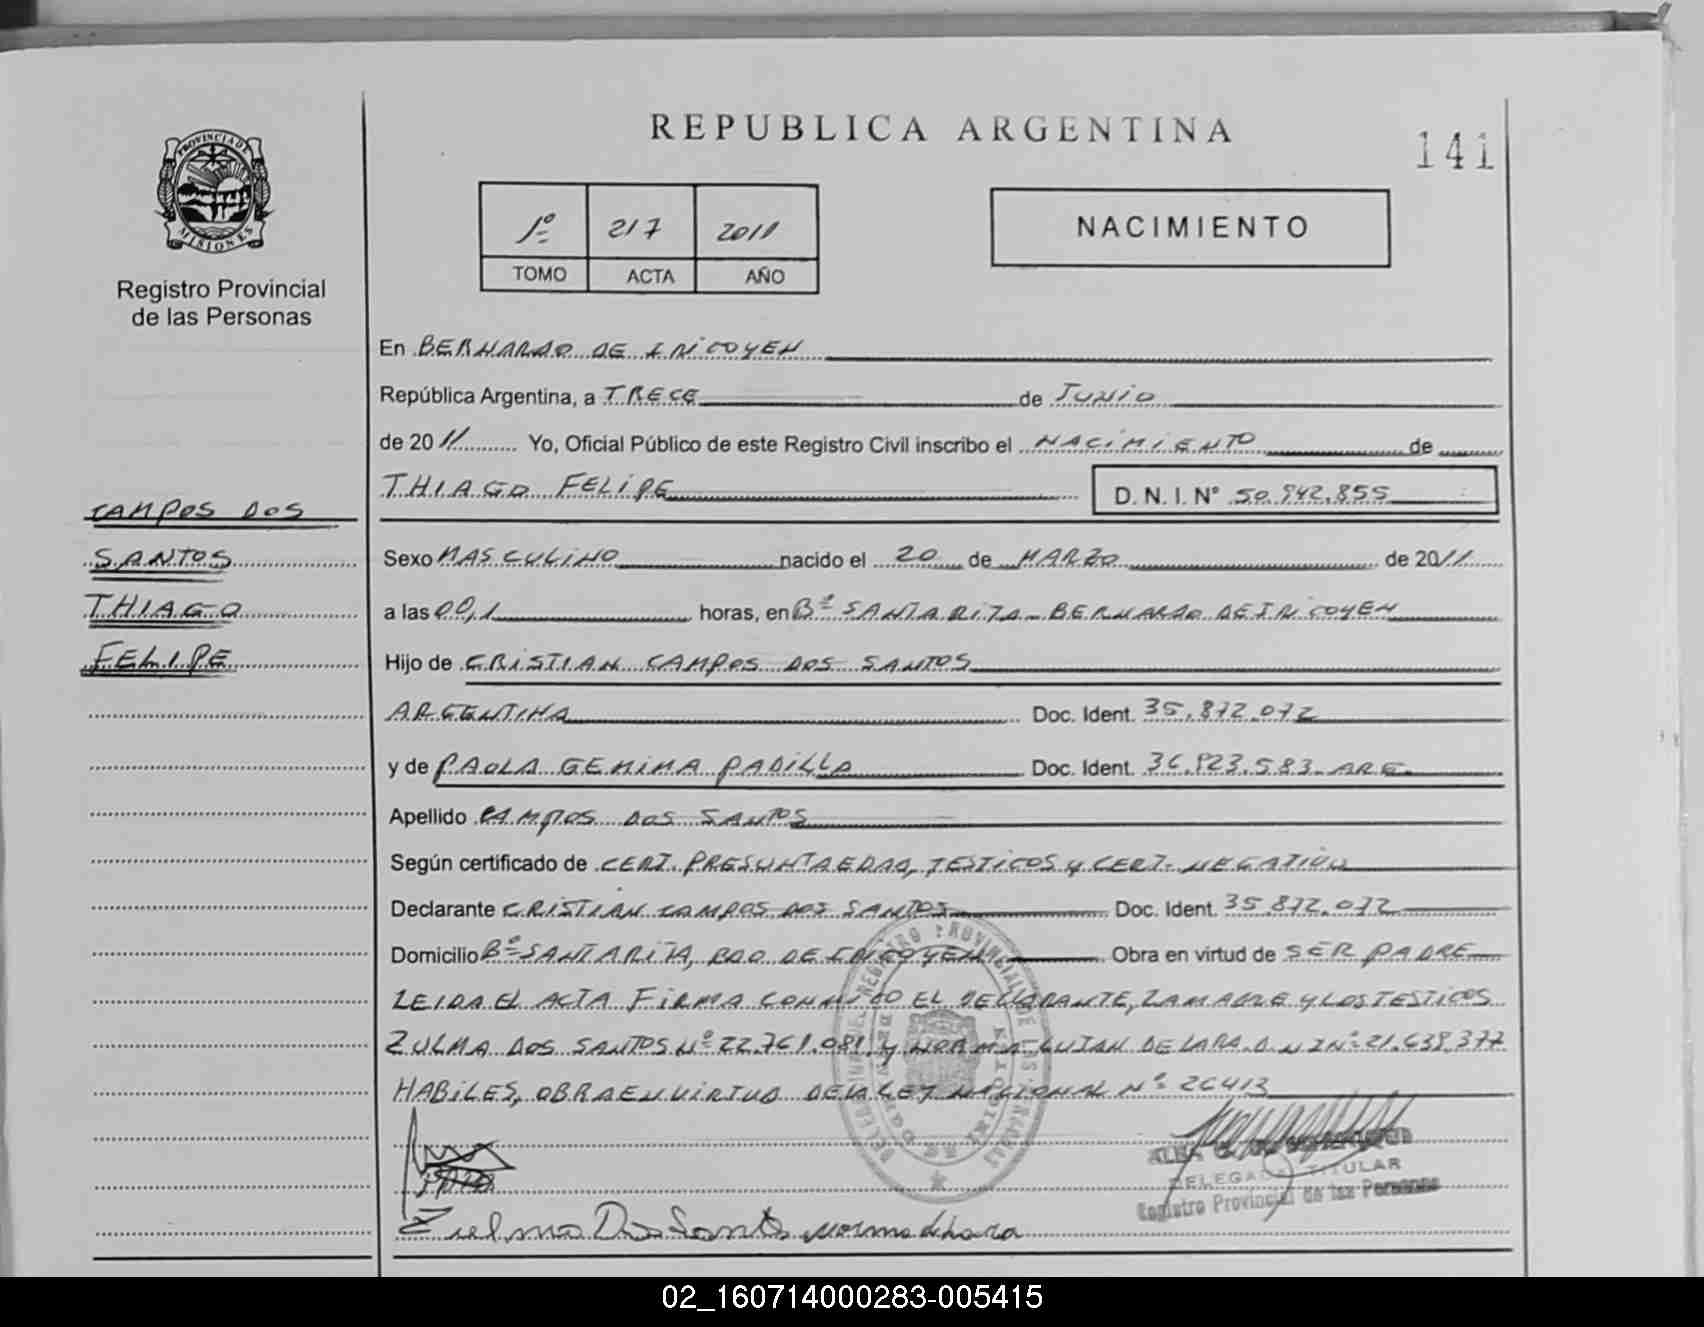 REPUBLICA ARGENTINA
141
PROVINCIA DE
MISIONES
Registro Provincial
de las Personas
1º 217 2011
TOMO ACTA AÑO
NACIMIENTO
En BERNARDO DE IRIGOYEN
República Argentina, a TRECE de JUNIO
de 2011 Yo, Oficial Público de este Registro Civil inscribo el NACIMIENTO de
THIAGO FELIPE D.N.I. Nº 50.942.855
CAMPOS DOS
SANTOS
THIAGO
FELIPE
Sexo MASCULINO nacido el 20 de MARZO de 2011
a las 00,1 horas, en Bº SANTA RITA - BERNARDO DE IRIGOYEN
Hijo de CRISTIAN CAMPOS DOS SANTOS
ARGENTINA Doc. Ident. 35.872.072
y de PAOLA GEMIMA PADILLA Doc. Ident. 36.923.583 ARG.
Apellido CAMPOS DOS SANTOS
Según certificado de CERT. PRESUNTA EDAD, TESTIGOS y CERT. NEGATIVO
Declarante CRISTIAN CAMPOS DOS SANTOS Doc. Ident. 35.872.072
Domicilio Bº SANTA RITA, BDO DE IRIGOYEN Obra en virtud de SER PADRE
LEIDA EL ACTA FIRMA CONMIGO EL DECLARANTE, LA MADRE y LOS TESTIGOS
ZULMA DOS SANTOS Nº 22.761.081 y NORMA LUJAN DE LARA D N I Nº 21.638.377
HABILES, OBRA EN VIRTUD DE LA LEY NACIONAL Nº 26413
DELEGADA TITULAR
Registro Provincial de las Personas
Zulma Dos Santos Norma de Lara
02_160714000283-005415